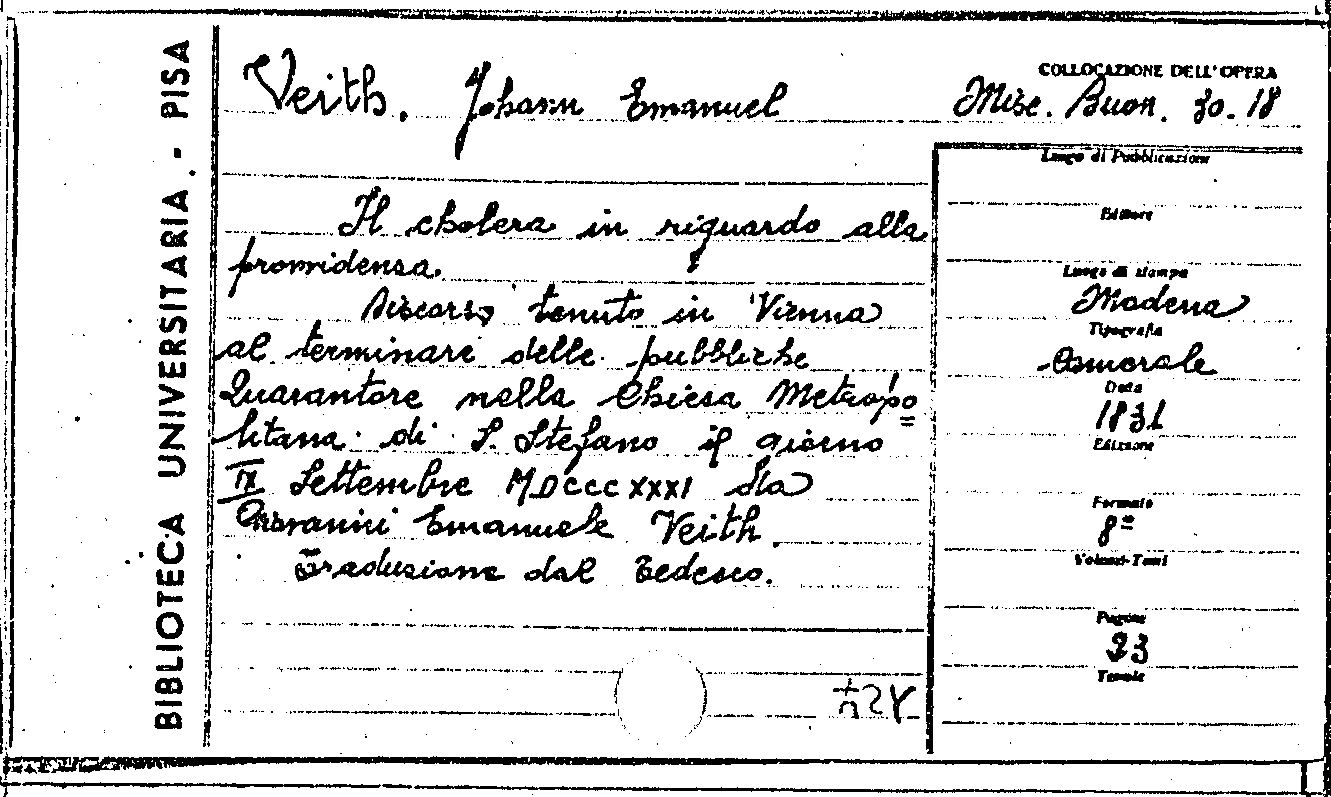 BIBLIOTECA UNIVERSITARIA. - PISA
Veith. Johann Emanuel
COLLOCAZIONE DELL'OPERA
Misc. Buon. 30. 18
Il cholera in riguardo alla
provvidenza.
Discorso tenuto in Vienna
al terminare delle pubbliche
Quarantore nella Chiesa Metropo=
litana di S. Stefano il giorno
IX Settembre MDCCCXXXI da
Giovanni Emanuele Veith.
Traduzione dal Tedesco.
Luogo di Pubblicazione
Editore
Luogo di stampa
Modena
Tipografia
Camerale
Data
1831
Edizione
Formato
8º
Volumi-Tomi
Pagine
23
Tavole